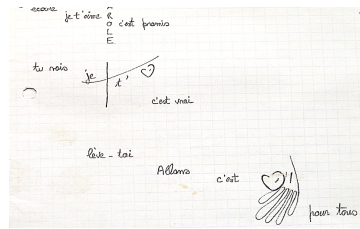 écoute
je t'aime PAROLE c'est promis
tu vois je t'
c'est vrai
lève-toi
Allons c'est
pour tous